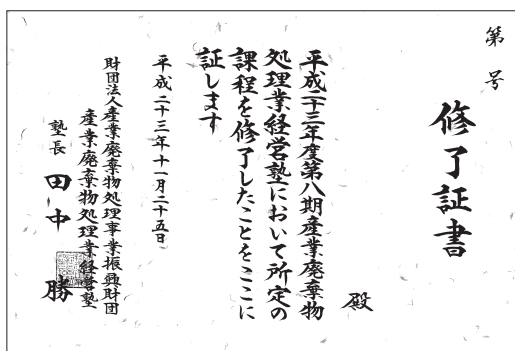 第　号
修了証書
殿
平成二十三年度第八期産業廃棄物
処理業経営塾において所定の
課程を修了したことをここに
証します
平成二十三年十一月二十五日
財団法人産業廃棄物処理事業振興財団
産業廃棄物処理業経営塾
塾長　田中　勝